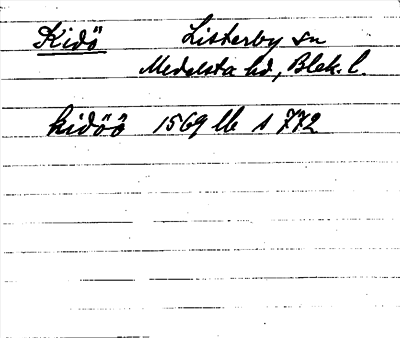 Kidö Listerby sn
Medelsta hd, Blek. l.
kidöö 1569 lb s 772